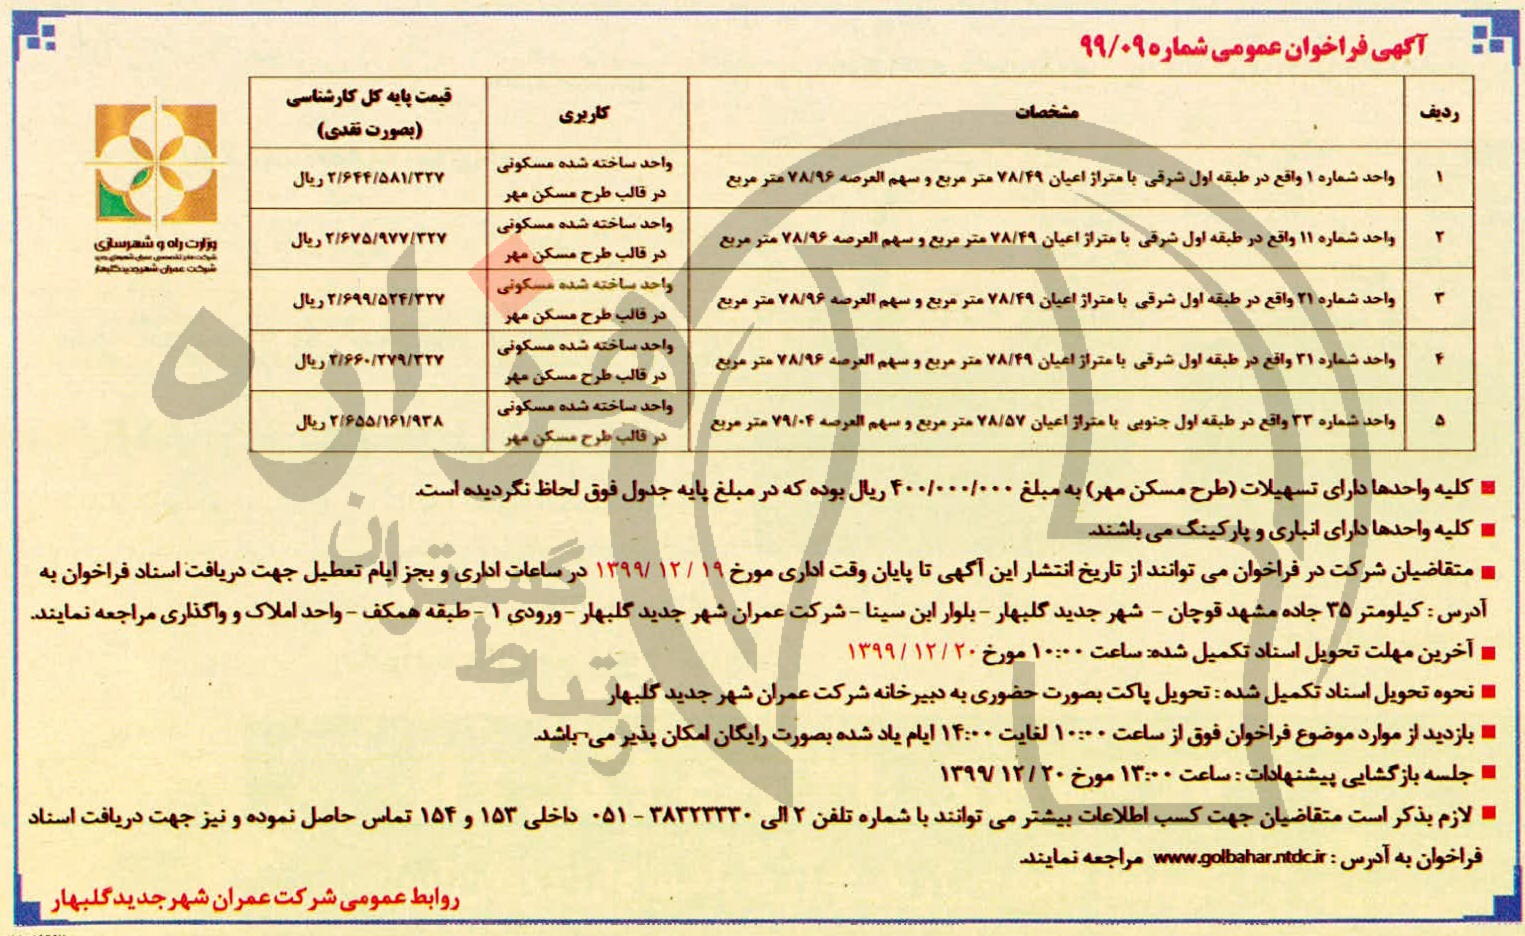 آگهی فراخوان عمومی شماره ۹۹/۰۹
ردیف	مشخصات	کاربری	قیمت پایه کل کارشناسی (بصورت نقدی)
۱	واحد شماره ۱ واقع در طبقه اول شرقی با متراژ اعیان ۷۸/۴۹ متر مربع و سهم العرصه ۷۸/۹۶ متر مربع	واحد ساخته شده مسکونی در قالب طرح مسکن مهر	۲/۶۴۴/۵۸۱/۳۲۷ ریال
۲	واحد شماره ۱۱ واقع در طبقه اول شرقی با متراژ اعیان ۷۸/۴۹ متر مربع و سهم العرصه ۷۸/۹۶ متر مربع	واحد ساخته شده مسکونی در قالب طرح مسکن مهر	۲/۶۷۵/۹۷۷/۳۲۷ ریال
۳	واحد شماره ۲۱ واقع در طبقه اول شرقی با متراژ اعیان ۷۸/۴۹ متر مربع و سهم العرصه ۷۸/۹۶ متر مربع	واحد ساخته شده مسکونی در قالب طرح مسکن مهر	۲/۶۹۹/۵۲۴/۳۲۷ ریال
۴	واحد شماره ۳۱ واقع در طبقه اول شرقی با متراژ اعیان ۷۸/۴۹ متر مربع و سهم العرصه ۷۸/۹۶ متر مربع	واحد ساخته شده مسکونی در قالب طرح مسکن مهر	۲/۶۶۰/۲۷۹/۳۲۷ ریال
۵	واحد شماره ۳۳ واقع در طبقه اول جنوبی با متراژ اعیان ۷۸/۵۷ متر مربع و سهم العرصه ۷۹/۰۴ متر مربع	واحد ساخته شده مسکونی در قالب طرح مسکن مهر	۲/۶۵۵/۱۶۱/۹۳۸ ریال
وزارت راه و شهرسازی
شرکت عمران شهر جدید گلبهار
کلیه واحدها دارای تسهیلات (طرح مسکن مهر) به مبلغ ۴۰۰/۰۰۰/۰۰۰ ریال بوده که در مبلغ پایه جدول فوق لحاظ نگردیده است.
کلیه واحدها دارای انباری و پارکینگ می باشند.
متقاضیان شرکت در فراخوان می توانند از تاریخ انتشار این آگهی تا پایان وقت اداری مورخ ۱۹ / ۱۲ / ۱۳۹۹ در ساعات اداری و بجز ایام تعطیل جهت دریافت اسناد فراخوان به
آدرس : کیلومتر ۳۵ جاده مشهد قوچان - شهر جدید گلبهار - بلوار ابن سینا - شرکت عمران شهر جدید گلبهار - ورودی ۱ - طبقه همکف - واحد املاک و واگذاری مراجعه نمایند.
آخرین مهلت تحویل اسناد تکمیل شده: ساعت ۱۰:۰۰ مورخ ۲۰ / ۱۲ / ۱۳۹۹
نحوه تحویل اسناد تکمیل شده : تحویل پاکت بصورت حضوری به دبیرخانه شرکت عمران شهر جدید گلبهار
بازدید از موارد موضوع فراخوان فوق از ساعت ۱۰:۰۰ لغایت ۱۴:۰۰ ایام یاد شده بصورت رایگان امکان پذیر می‌باشد.
جلسه بازگشایی پیشنهادات : ساعت ۱۳:۰۰ مورخ ۲۰ / ۱۲ / ۱۳۹۹
لازم بذکر است متقاضیان جهت کسب اطلاعات بیشتر می توانند با شماره تلفن ۲ الی ۳۸۳۲۳۳۳۰ - ۰۵۱ داخلی ۱۵۳ و ۱۵۴ تماس حاصل نموده و نیز جهت دریافت اسناد
فراخوان به آدرس : www.golbahar.ntdc.ir مراجعه نمایند.
روابط عمومی شرکت عمران شهر جدید گلبهار
هزاره
گستران
ارتباط